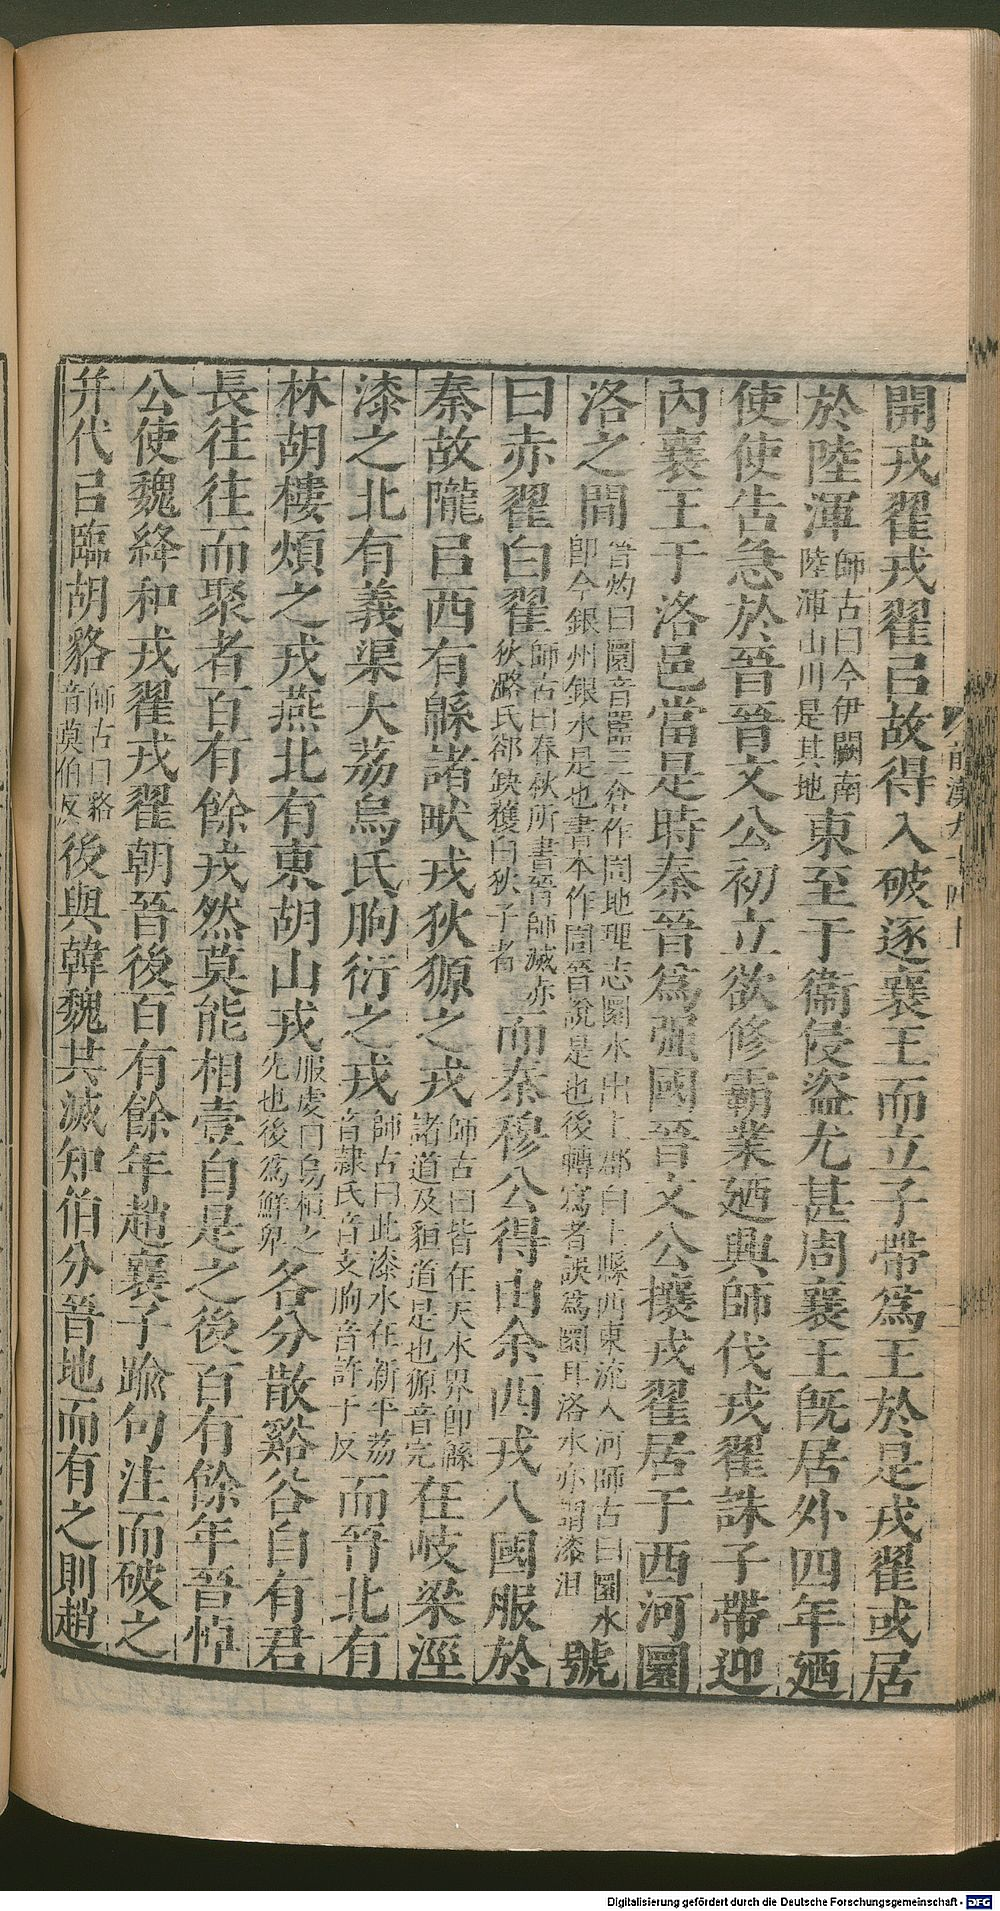 開戎翟戎翟㠯故得入破逐襄王而立子帶爲王於是戎翟或居
於陸渾師古曰今伊闕南陸渾山川是其地東至于衞侵盜尤甚周襄王旣居外四年廼
使使告急於晉晉文公初立欲修霸業廼興師伐戎翟誅子帶迎
內襄王于洛邑當是時秦晉爲强國晉文公攘戎翟居于西河圁
洛之閒晉灼曰圁音嚚三倉作圁地理志圁水出上郡白土縣西東流入河師古曰圁水卽今銀州銀水是也書本作圁晉說是也後轉寫者誤爲圁耳洛水亦謂漆沮號
曰赤翟白翟師古曰春秋所書晉師滅赤狄潞氏郤缺獲白狄子者而秦穆公得由余西戎八國服於
秦故隴㠯西有緜諸畎戎狄獂之戎師古曰皆在天水界卽緜諸道及獂道是也獂音完在岐梁涇
漆之北有義渠大荔烏氏朐衍之戎師古曰此漆水在新平荔音隸氏音支朐音許于反而晉北有
林胡樓煩之戎燕北有東胡山戎服虔曰烏桓之先也後爲鮮卑各分散谿谷自有君
長往往而聚者百有餘戎然莫能相壹自是之後百有餘年晉悼
公使魏絳和戎翟戎翟朝晉後百有餘年趙襄子踰句注而破之
并代㠯臨胡貉師古曰貉音莫伯反後與韓魏共滅知伯分晉地而有之則趙
前漢九十四上
二
Digitalisierung gefördert durch die Deutsche Forschungsgemeinschaft - DFG